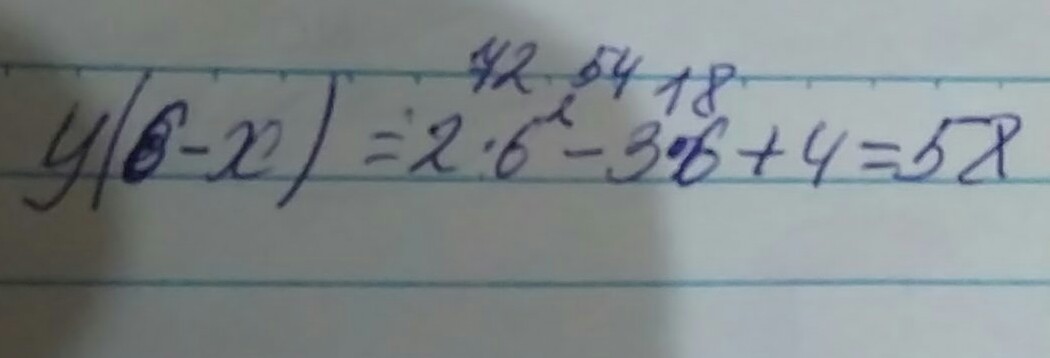 72 54 18
y(6-x) = 2·6² - 3·6 + 4 = 58